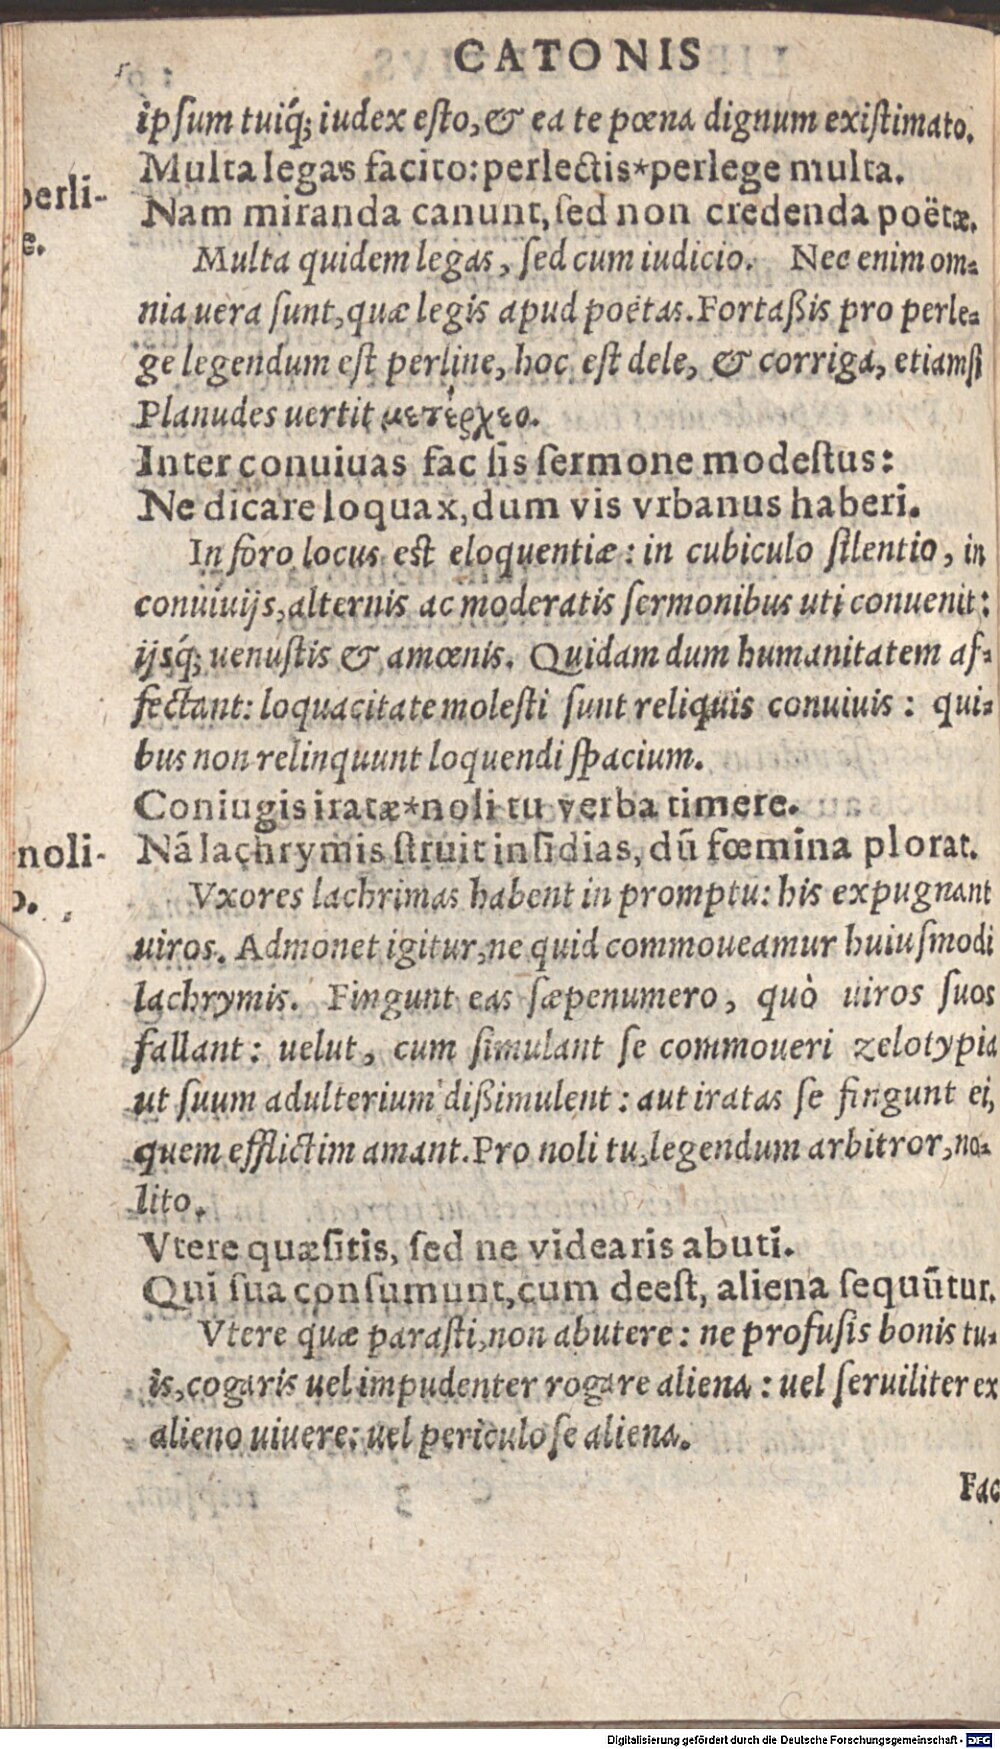 CATONIS
ipſum tuiq́; iudex eſto, & ea te pœna dignum exiſtimato.
Multa legas facito: perlectis*perlege multa.
perli-
Nam miranda canunt, ſed non credenda poëtæ.
e.
Multa quidem legas, ſed cum iudicio. Nec enim om-
nia uera ſunt, quæ legis apud poëtas. Fortaßis pro perle-
ge legendum eſt perline, hoc eſt dele, & corriga, etiamſi
Planudes uertit μετέρχεο.
Inter conuiuas fac ſis ſermone modeſtus:
Ne dicare loquax, dum vis vrbanus haberi.
In foro locus eſt eloquentiæ: in cubiculo ſilentio, in
conuiuijs, alternis ac moderatis ſermonibus uti conuenit:
ijsq́; uenuſtis & amœnis. Quidam dum humanitatem af-
fectant: loquacitate moleſti ſunt reliquis conuiuis: qui-
bus non relinquunt loquendi ſpacium.
Coniugis iratæ*noli tu verba timere.
noli-
Nã lachrymis ſtruit inſidias, dũ fœmina plorat.
o.
Vxores lachrimas habent in promptu: his expugnant
uiros. Admonet igitur, ne quid commoueamur huiuſmodi
lachrymis. Fingunt eas ſæpenumero, quò uiros ſuos
fallant: uelut, cum ſimulant ſe commoueri zelotypia
ut ſuum adulterium dißimulent: aut iratas ſe fingunt ei,
quem efflictim amant. Pro noli tu, legendum arbitror, no-
lito.
Vtere quæſitis, ſed ne videaris abuti.
Qui ſua conſumunt, cum deeſt, aliena ſequũtur.
Vtere quæ paraſti, non abutere: ne profuſis bonis tu-
is, cogaris uel impudenter rogare aliena: uel ſeruiliter ex
alieno uiuere: uel periculoſe aliena.
Fac
Digitalisierung gefördert durch die Deutsche Forschungsgemeinschaft - DFG